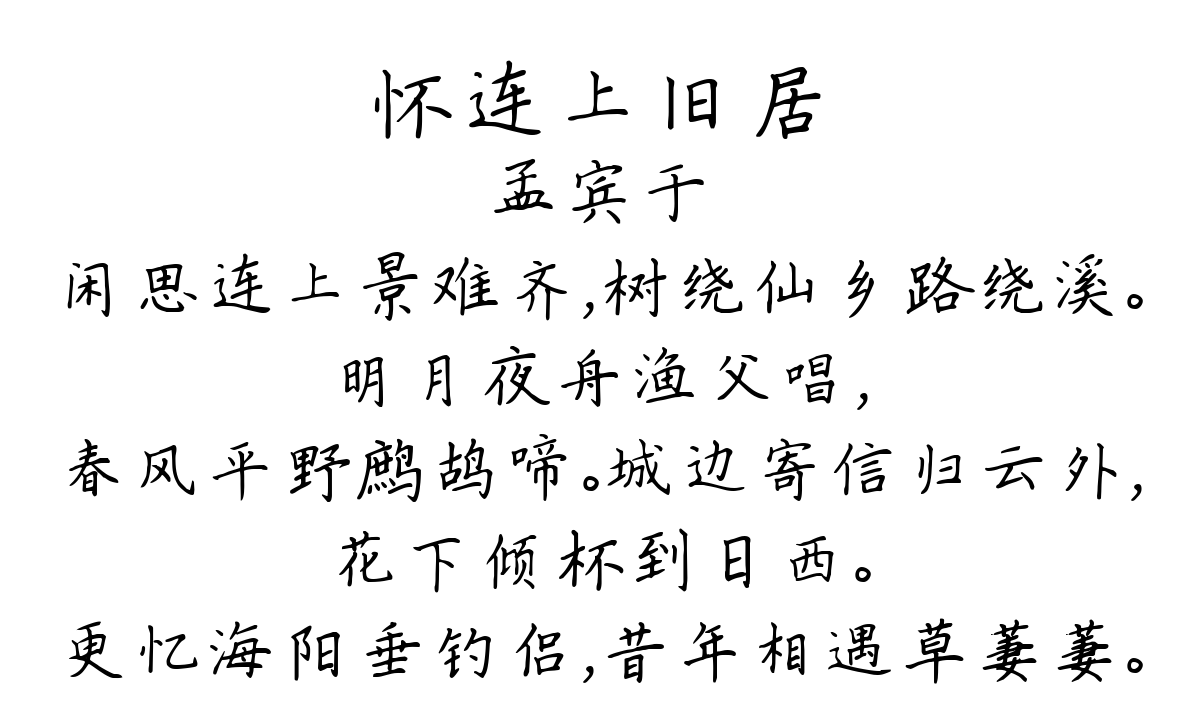 怀连上旧居
孟宾于
闲思连上景难齐,树绕仙乡路绕溪。
明月夜舟渔父唱,
春风平野鹧鸪啼。城边寄信归云外,
花下倾杯到日西。
更忆海阳垂钓侣,昔年相遇草萋萋。